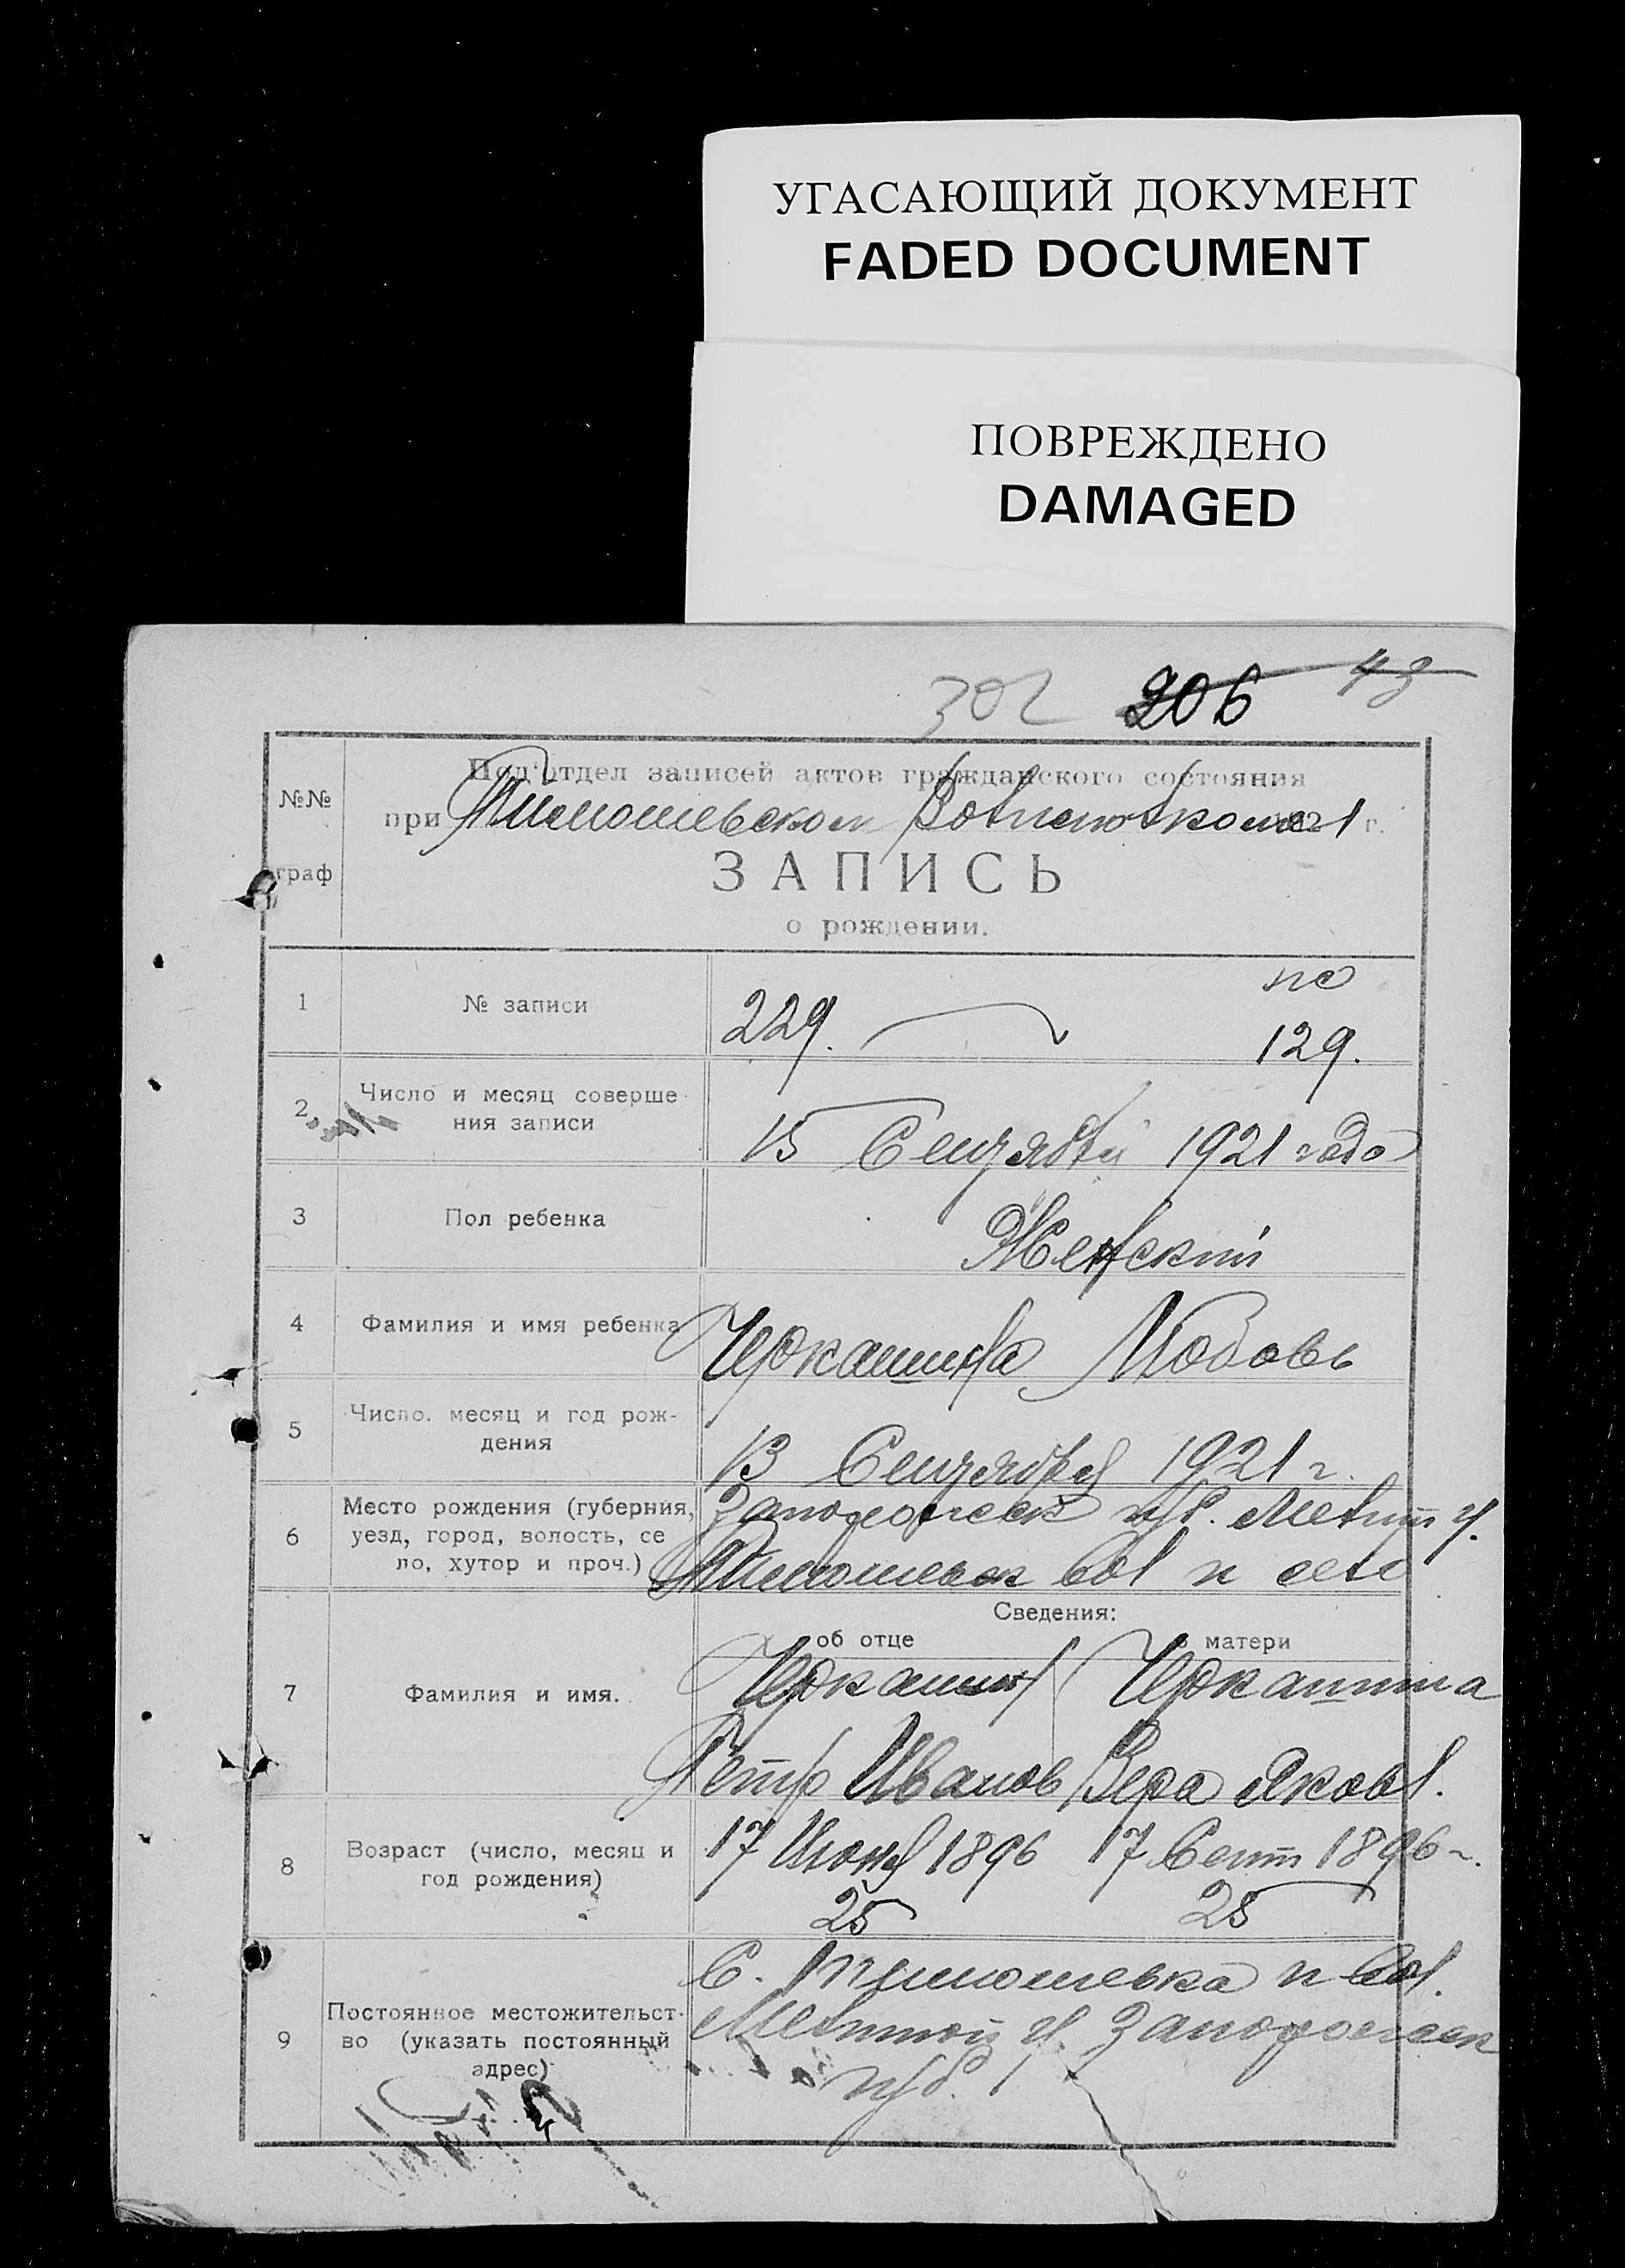 УГАСАЮЩИЙ ДОКУМЕНТ
FADED DOCUMENT
ПОВРЕЖДЕНО
DAMAGED
302 206 43
№№ граф
Под'отдел записей актов гражданского состояния
при Тимошевском Волисполкоме 1921 г.
ЗАПИСЬ
о рождении.
1 № записи 229. по 129.
2 Число и месяц соверше-
ния записи 15 Сентября 1921 года
3 Пол ребенка Женский
4 Фамилия и имя ребенка Черкашина Любовь
5 Число, месяц и год рож-
дения 13 Сентября 1921 г.
6 Место рождения (губерния, Запорожск губ. Мелит у.
уезд, город, волость, се
ло, хутор и проч.) Тимошевск вол и село
Сведения:
об отце о матери
7 Фамилия и имя. Черкашин Черкашина
Петр Иванов Вера Яковл.
8 Возраст (число, месяц и 17 Июня 1896 17 Сент 1896 г.
год рождения) 25 25
9 Постоянное местожительст-
во (указать постоянный
адрес)
С. Тимошевка и вол.
Мелитой у. Запорожск
губ.